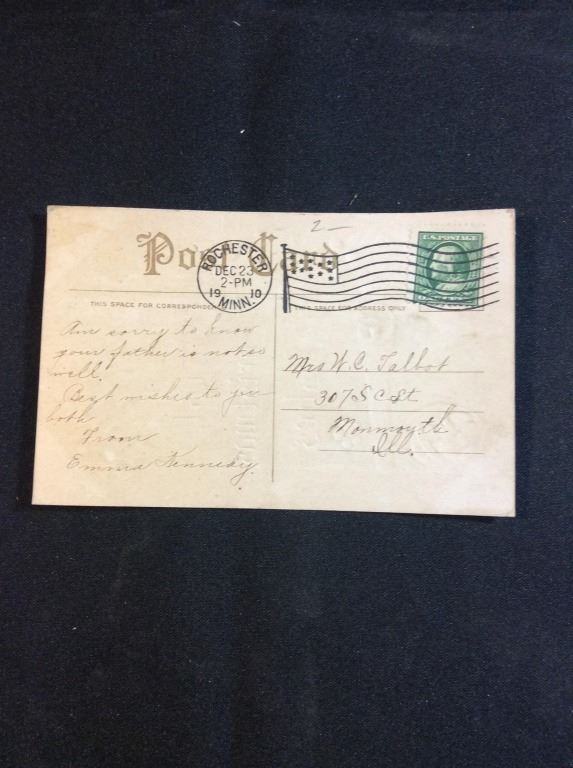 2—
Post Card
ROCHESTER
DEC 23
2-PM
1910
MINN.
U.S. POSTAGE
THIS SPACE FOR CORRESPONDENCE
THIS SPACE FOR ADDRESS ONLY
Am sorry to know
your father is not so
well.
Best wishes to you
both
From
Emma Kennedy.
Mrs W. C. Talbot
307 S C St
Monmouth
Ill.